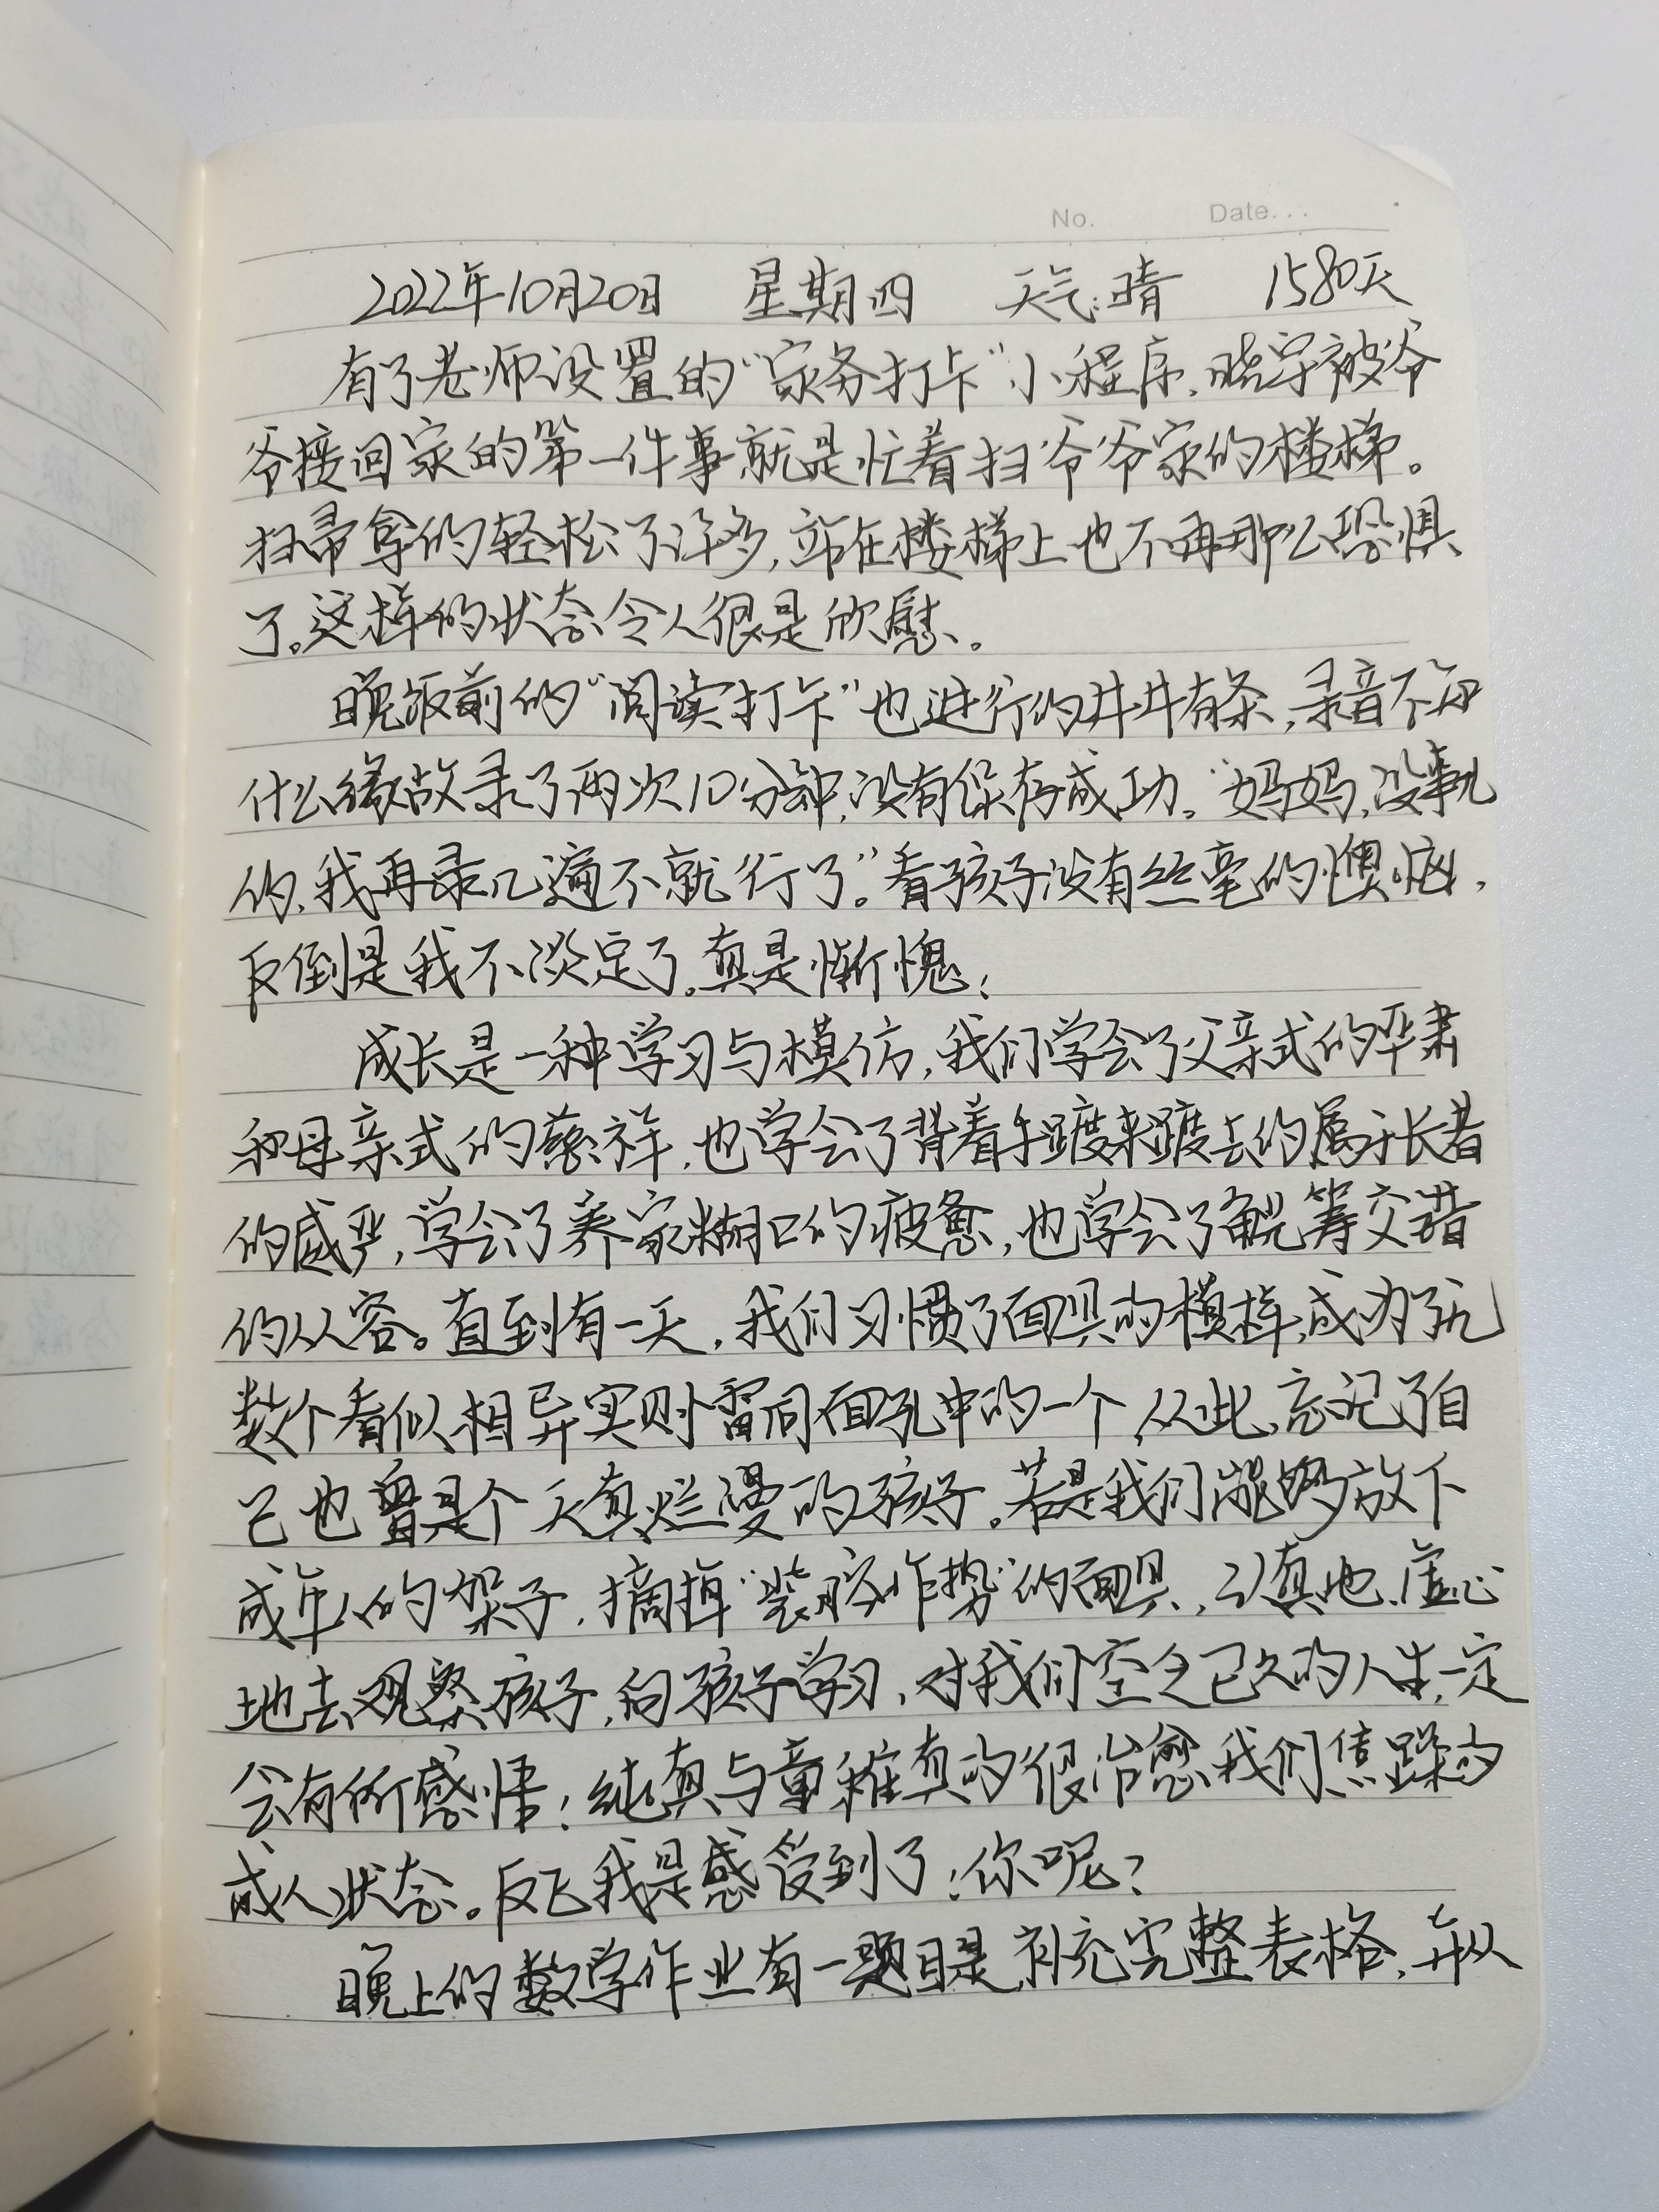 No. Date...
2022年10月20日 星期四 天气:晴 1580天
有了老师设置的“家务打卡”小程序,晓宇被爷
爷接回家的第一件事就是忙着扫爷爷家的楼梯。
扫帚拿的轻松了许多,站在楼梯上也不再那么恐惧
了。这样的状态令人很是欣慰。
晚饭前的“阅读打卡”也进行的井井有条,录音不知
什么缘故录了两次10分钟,没有保存成功。“妈妈,没事儿
的,我再录几遍不就行了。”看孩子没有丝毫的懊恼,
反倒是我不淡定了。真是惭愧!
成长是一种学习与模仿,我们学会了父亲式的严肃
和母亲式的慈祥,也学会了背着手踱来踱去的属于长者
的威严,学会了养家糊口的疲惫,也学会了觥筹交错
的从容。直到有一天,我们习惯了面具的模样,成为了无
数个看似相异实则雷同面孔中的一个,从此,忘记了自
己也曾是个天真烂漫的孩子。若是我们能够放下
成年人的架子,摘掉“装腔作势”的面具,认真地、虚心
地去观察孩子,向孩子学习,对我们空乏已久的人生,一定
会有所感悟!纯真与童稚真的很治愈我们焦躁的
成人状态。反正我是感受到了!你呢?
晚上的数学作业有一题目是补充完整表格,并从